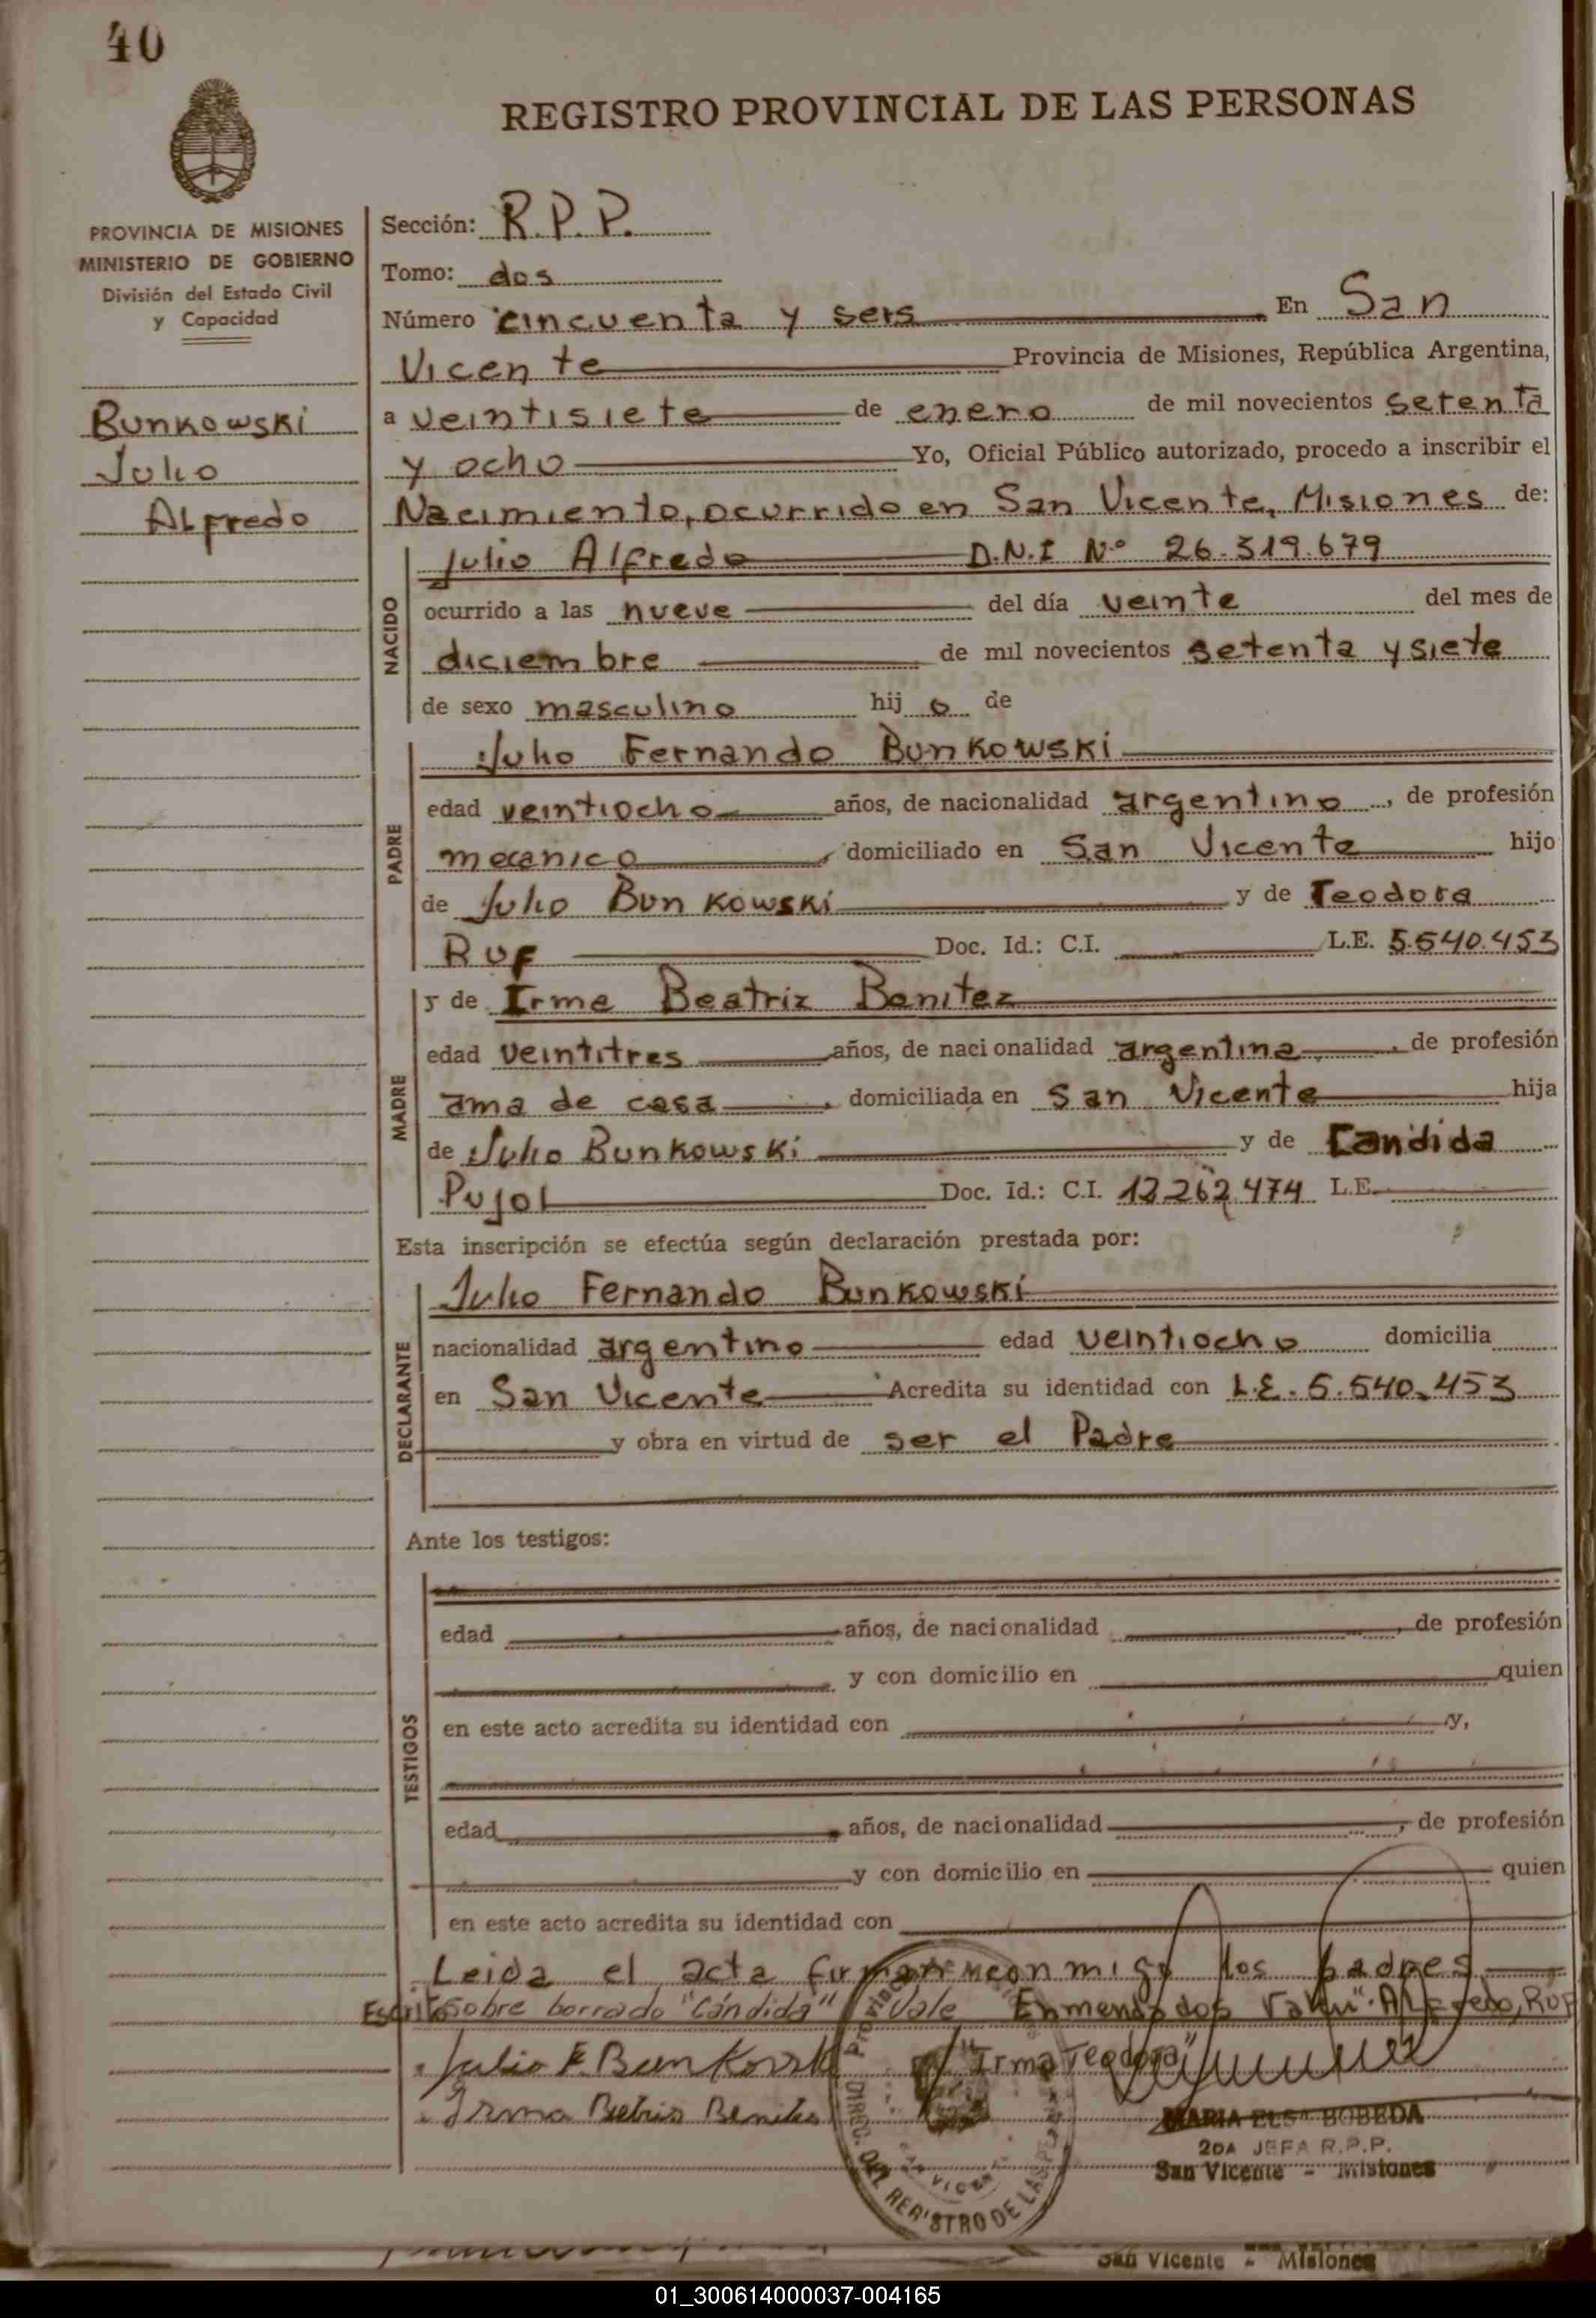 40
REGISTRO PROVINCIAL DE LAS PERSONAS
PROVINCIA DE MISIONES
MINISTERIO DE GOBIERNO
División del Estado Civil
y Capacidad
Bunkowski
Julio
Alfredo
Sección: R.P.P.
Tomo: dos
Número cincuenta y seis En San
Vicente Provincia de Misiones, República Argentina,
a veintisiete de enero de mil novecientos setenta
y ocho Yo, Oficial Público autorizado, procedo a inscribir el
Nacimiento, ocurrido en San Vicente, Misiones de:
NACIDO
Julio Alfredo D.N.I Nº 26.319.679
ocurrido a las nueve del día veinte del mes de
diciembre de mil novecientos setenta y siete
de sexo masculino hij o de
PADRE
Julio Fernando Bunkowski
edad veintiocho años, de nacionalidad argentino, de profesión
mecanico, domiciliado en San Vicente hijo
de Julio Bunkowski y de Teodora
Ruf Doc. Id.: C.I. L.E. 5.540.453
MADRE
y de Irma Beatriz Benitez
edad veintitres años, de nacionalidad argentina, de profesión
ama de casa, domiciliada en San Vicente hija
de Julio Bunkowski y de Candida
Pujol Doc. Id.: C.I. 12.262.474 L.E.
Esta inscripción se efectúa según declaración prestada por:
DECLARANTE
Julio Fernando Bunkowski
nacionalidad argentino edad veintiocho domicilia
en San Vicente Acredita su identidad con L.E. 5.540.453
y obra en virtud de ser el Padre
Ante los testigos:
TESTIGOS
edad años, de nacionalidad, de profesión
y con domicilio en quien
en este acto acredita su identidad con y,
edad años, de nacionalidad, de profesión
y con domicilio en quien
en este acto acredita su identidad con
Leida el acta firman conmigo los padres
Escrito sobre borrado "Cándida" Vale Enmendados Valen: Alfredo, Ruf
Julio F. Bunkowski "Irma Teodora"
Irma Beatriz Benitez
DIREC. DEL REGISTRO DE LAS
MARIA ELSA BOBEDA
2DA JEFA R.P.P.
San Vicente - Misiones
San Vicente - Misiones
01_300614000037-004165